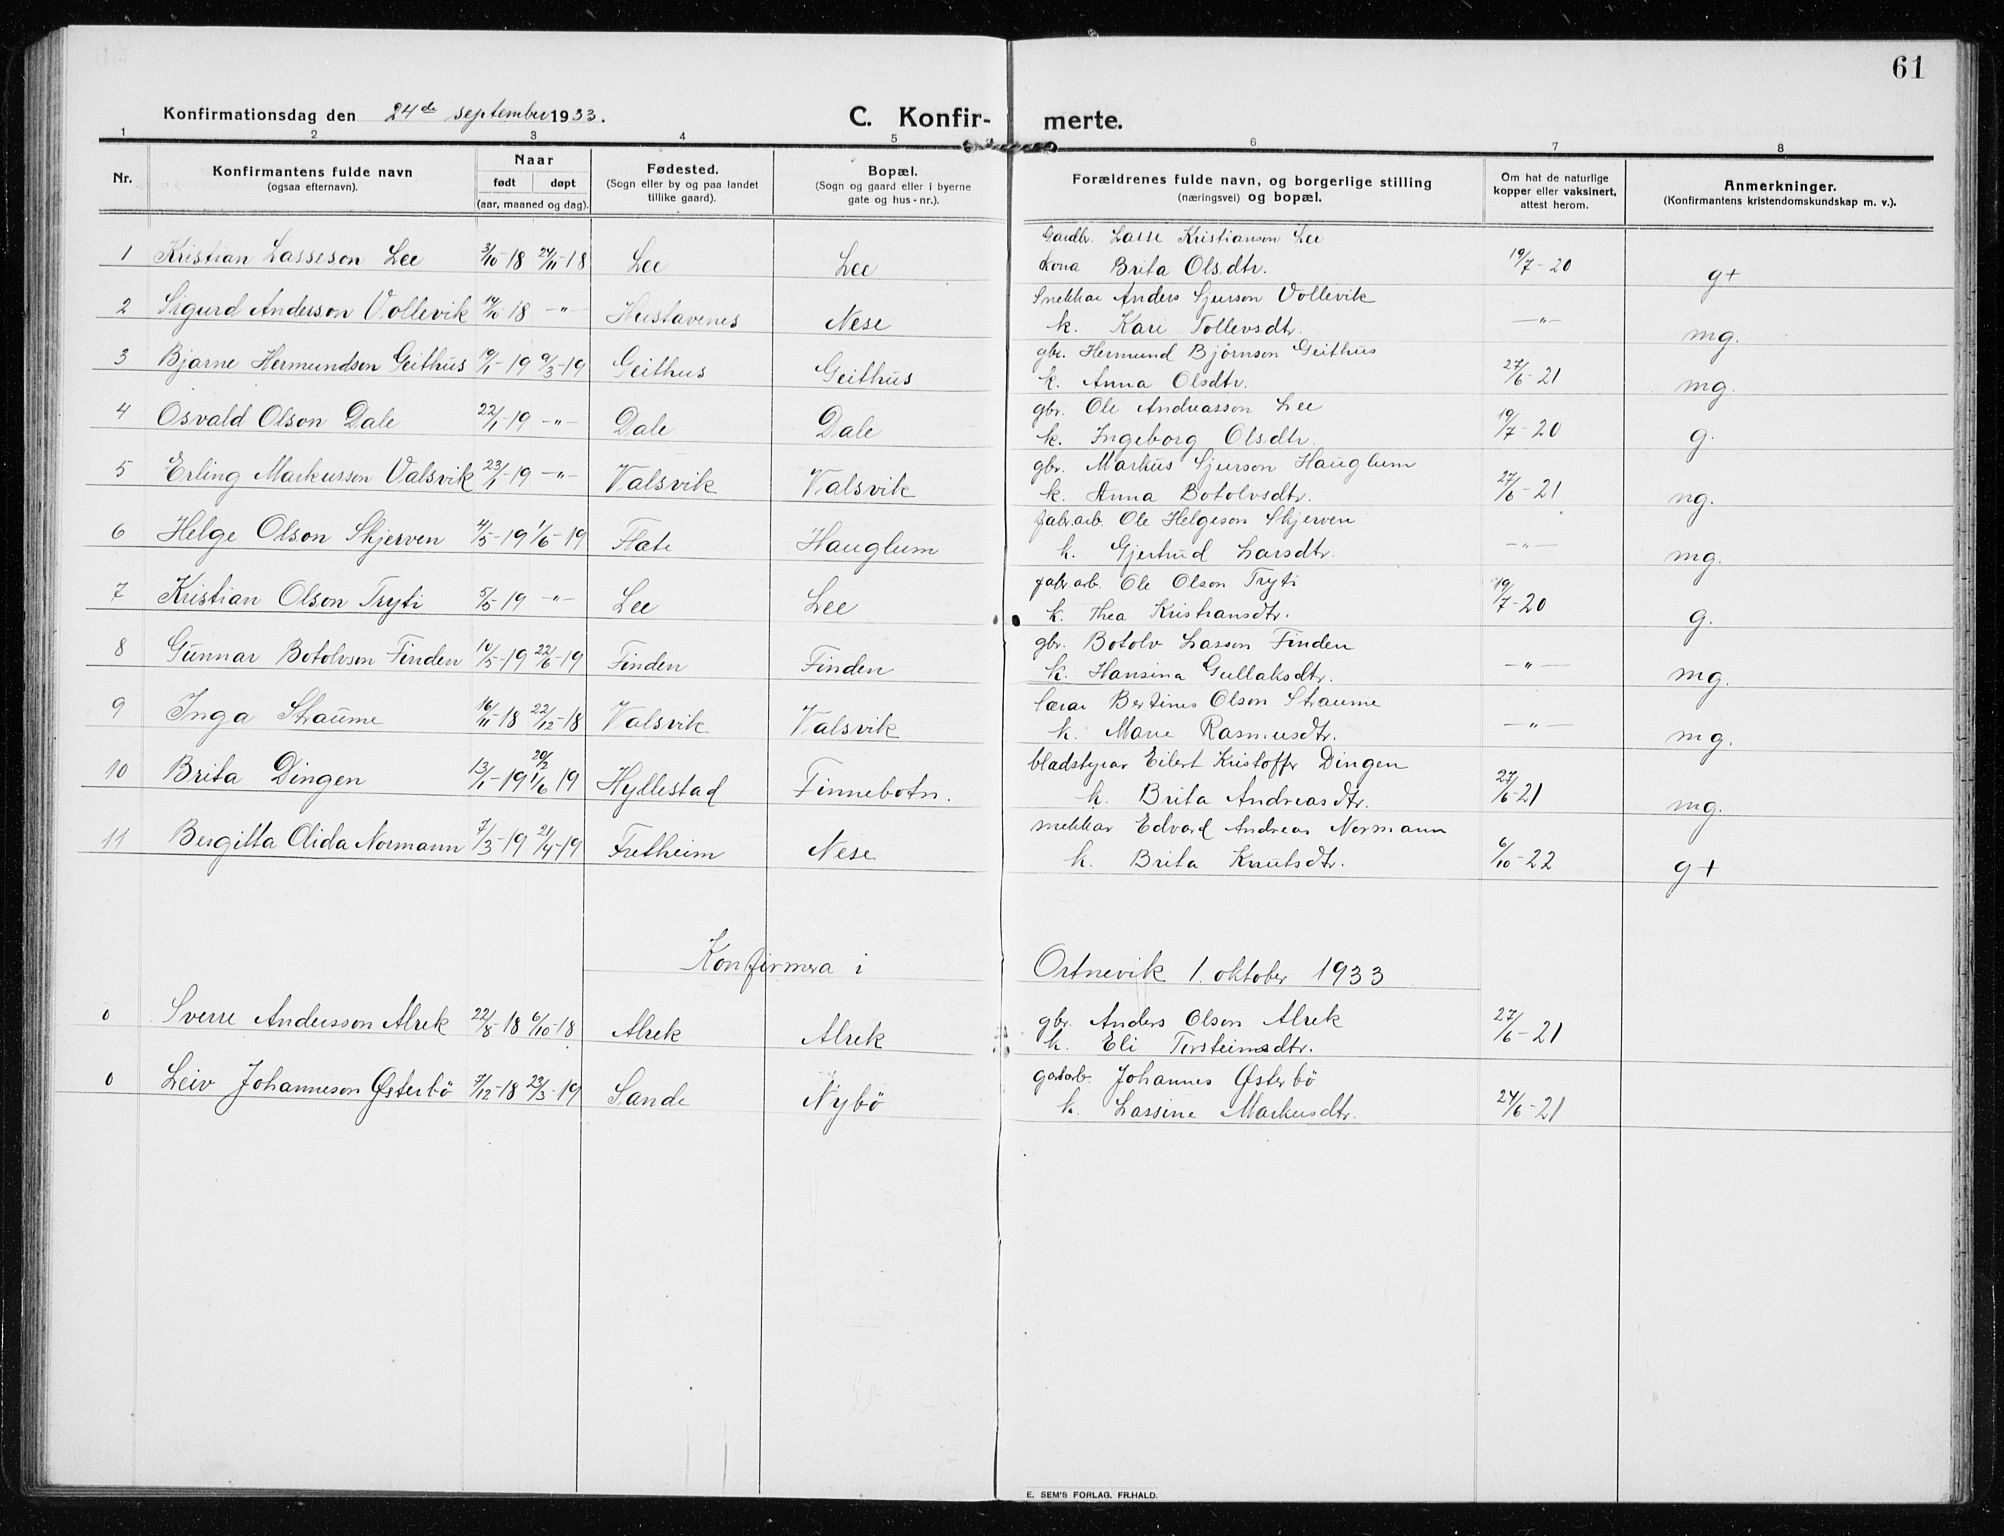 61
Konfirmationsdag den 24de september 1933.
C. Konfir- merte.
1 2 3 4 5 6 7 8
Nr.
Konfirmantens fulde navn
(ogsaa efternavn).
Naar
født døpt
(aar, maaned og dag).
Fødested.
(Sogn eller by og paa landet
tillike gaard).
Bopæl.
(Sogn og gaard eller i byerne
gate og hus-nr.).
Forældrenes fulde navn, og borgerlige stilling
(næringsvei) og bopæl.
Om hat de naturlige
kopper eller vaksinert,
attest herom.
Anmerkninger.
(Konfirmantens kristendomskundskap m. v.).
1 Kristian Lasseson Lee 3/10-18 24/11-18 Lee Lee Gardbr. Lasse Kristianson Lee
kona Brita Olsdtr. 19/7-20 g+
2 Sigurd Anderson Vollevik 14/10 18 -"- Hustavenes Nese Snekkar Anders Sjurson Vollevik
k. Kari Tollevsdtr. -"- mg.
3 Bjarne Hermundson Geithus 19/1-19 9/3-19 Geithus Geithus gbr. Hermund Bjørnson Geithus
k. Anna Olsdtr. 27/6-21 mg.
4 Osvald Olson Dale 22/1-19 -"- Dale Dale gbr. Ole Andreasson Lee
k. Ingeborg Olsdtr. 19/7-20 g.
5 Erling Markusson Valsvik 23/1-19 -"- Valsvik Valsvik gbr. Markus Sjurson Hauglum
k. Anna Botolvsdtr. 27/6-21 ng.
6 Helge Olson Skjerven 4/5-19 1/6-19 Flate Hauglum fabr.arb. Ole Helgeson Skjerven
k. Gjertrud Larsdtr. -"- mg.
7 Kristian Olson Tryti 5/5-19 -"- Lee Lee fabr.arb. Ole Olson Tryti
k. Thea Kristiansdtr. 19/7-20 g.
8 Gunnar Botolvson Finden 10/5-19 22/6-19 Finden Finden gbr. Botolv Lasson Finden
k. Hansina Gullaksdtr. -"- mg.
9 Inga Straume 16/11-18 22/12-18 Valsvik Valsvik lærar Bertines Olson Straume
k. Marie Rasmusdtr. -"- mg.
10 Brita Dingen 13/1-19 20/2 1/6 19 Hyllestad Finnebotn. bladstyrar Eilert Kristoffr Dingen
k. Brita Andreasdtr. 27/6-21 mg.
11 Bergitta Alida Normann 7/3-19 21/4-19 Fretheim Nese mekkar Edvard Andreas Normann
k. Brita Knutsdtr. 6/10-22 g+
Konfirmera i Ortnevik 1. oktober 1933
0 Sverre Andersson Alrek 22/8-18 6/10-18 Alrek Alrek gbr. Anders Olson Alrek
k. Eli Torsteinsdtr. 27/6-21
0 Leiv Johanneson Østerbö 7/12-18 23/3-19 Sande Nybö gardarb. Johannes Østerbö
k. Lassine Markusdtr. 24/6-21
E. SEM'S FORLAG, FR.HALD.